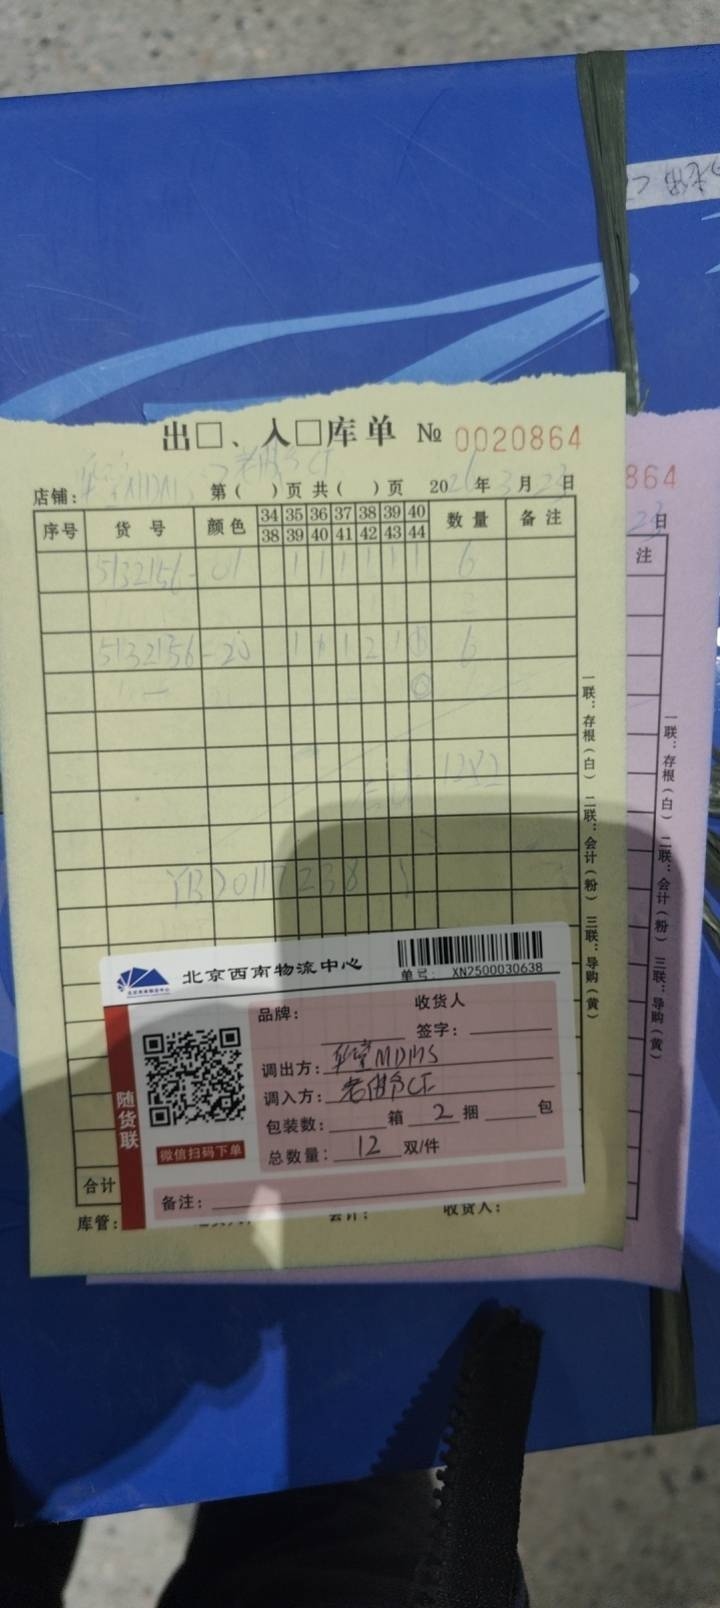 出□、入□库单 № 0020864
店铺: 第( )页 共( )页 2026年3月23日
序号 货号 颜色 34 35 36 37 38 39 40 数量 备注
38 39 40 41 42 43 44
5132156-01 1 1 1 1 1 1 6
5132156-20 1 1 1 2 1 6
合计 12双
一联:存根(白) 二联:会计(粉) 三联:导购(黄)
合计
库管: 会计: 收货人:
864
23日
注
一联:存根(白) 二联:会计(粉) 三联:导购(黄)
北京西南物流中心
单号: XN2500030638
随货联
微信扫码下单
品牌: 收货人
签字:
调出方: MDMS
调入方: 老佛爷CF
包装数: 箱 2 捆 包
总数量: 12 双/件
备注: